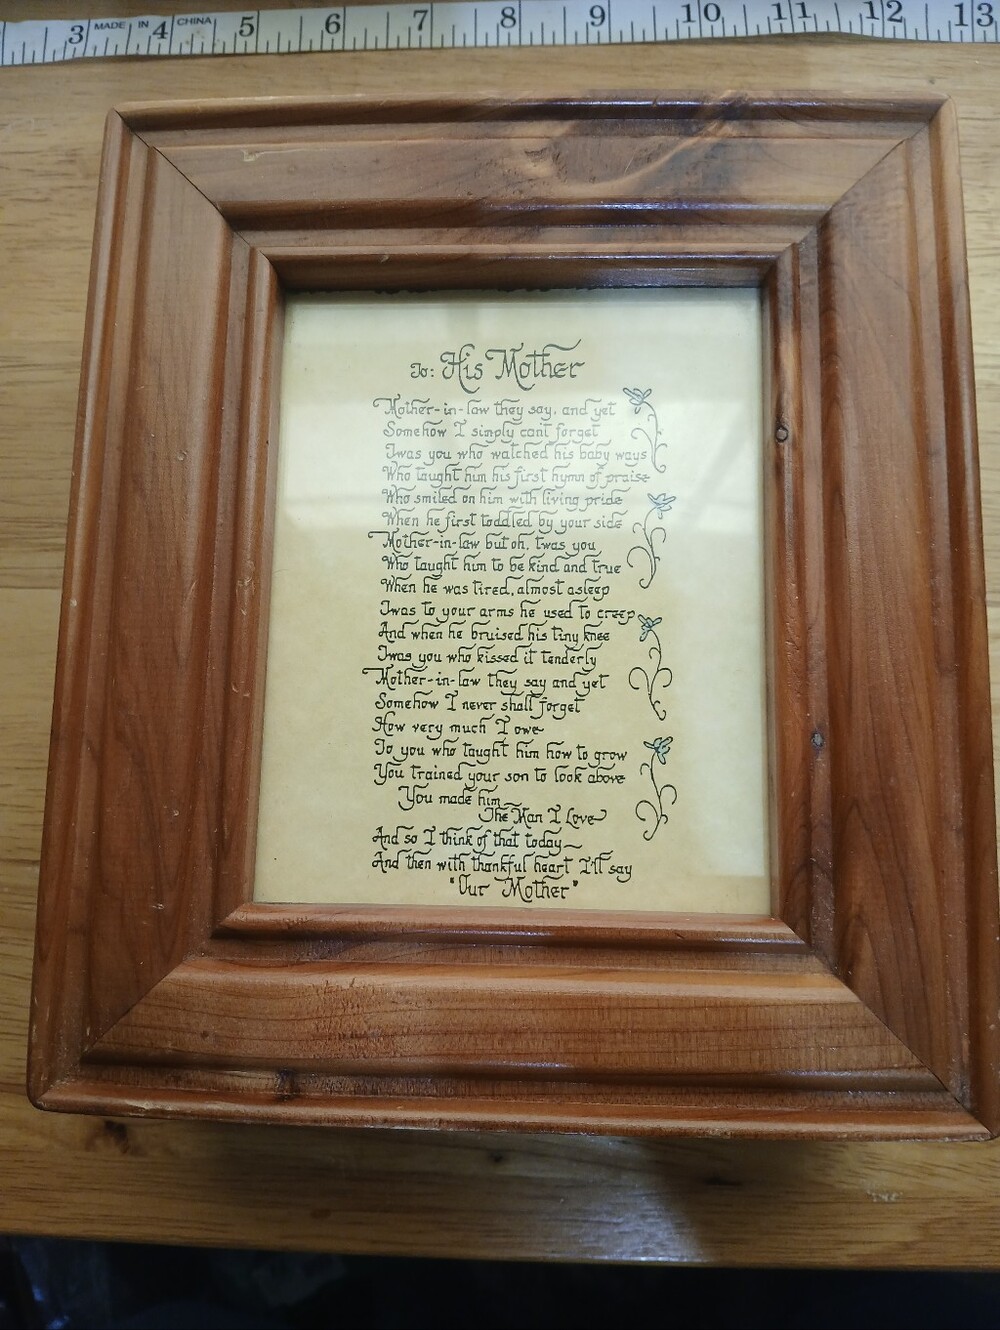 3 MADE IN 4 CHINA 5 6 7 8 9 10 11 12 13
To: His Mother
Mother-in-law they say, and yet
Somehow I simply cant forget
Twas you who watched his baby ways
Who taught him his first hymn of praise
Who smiled on him with living pride
When he first toddled by your side
Mother-in-law but oh, twas you
Who taught him to be kind and true
When he was tired, almost asleep
Twas to your arms he used to creep
And when he bruised his tiny knee
Twas you who kissed it tenderly
Mother-in-law they say and yet
Somehow I never shall forget
How very much I owe
To you who taught him how to grow
You trained your son to look above
You made him
The Man I Love
And so I think of that today~
And then with thankful heart I'll say
"Our Mother"